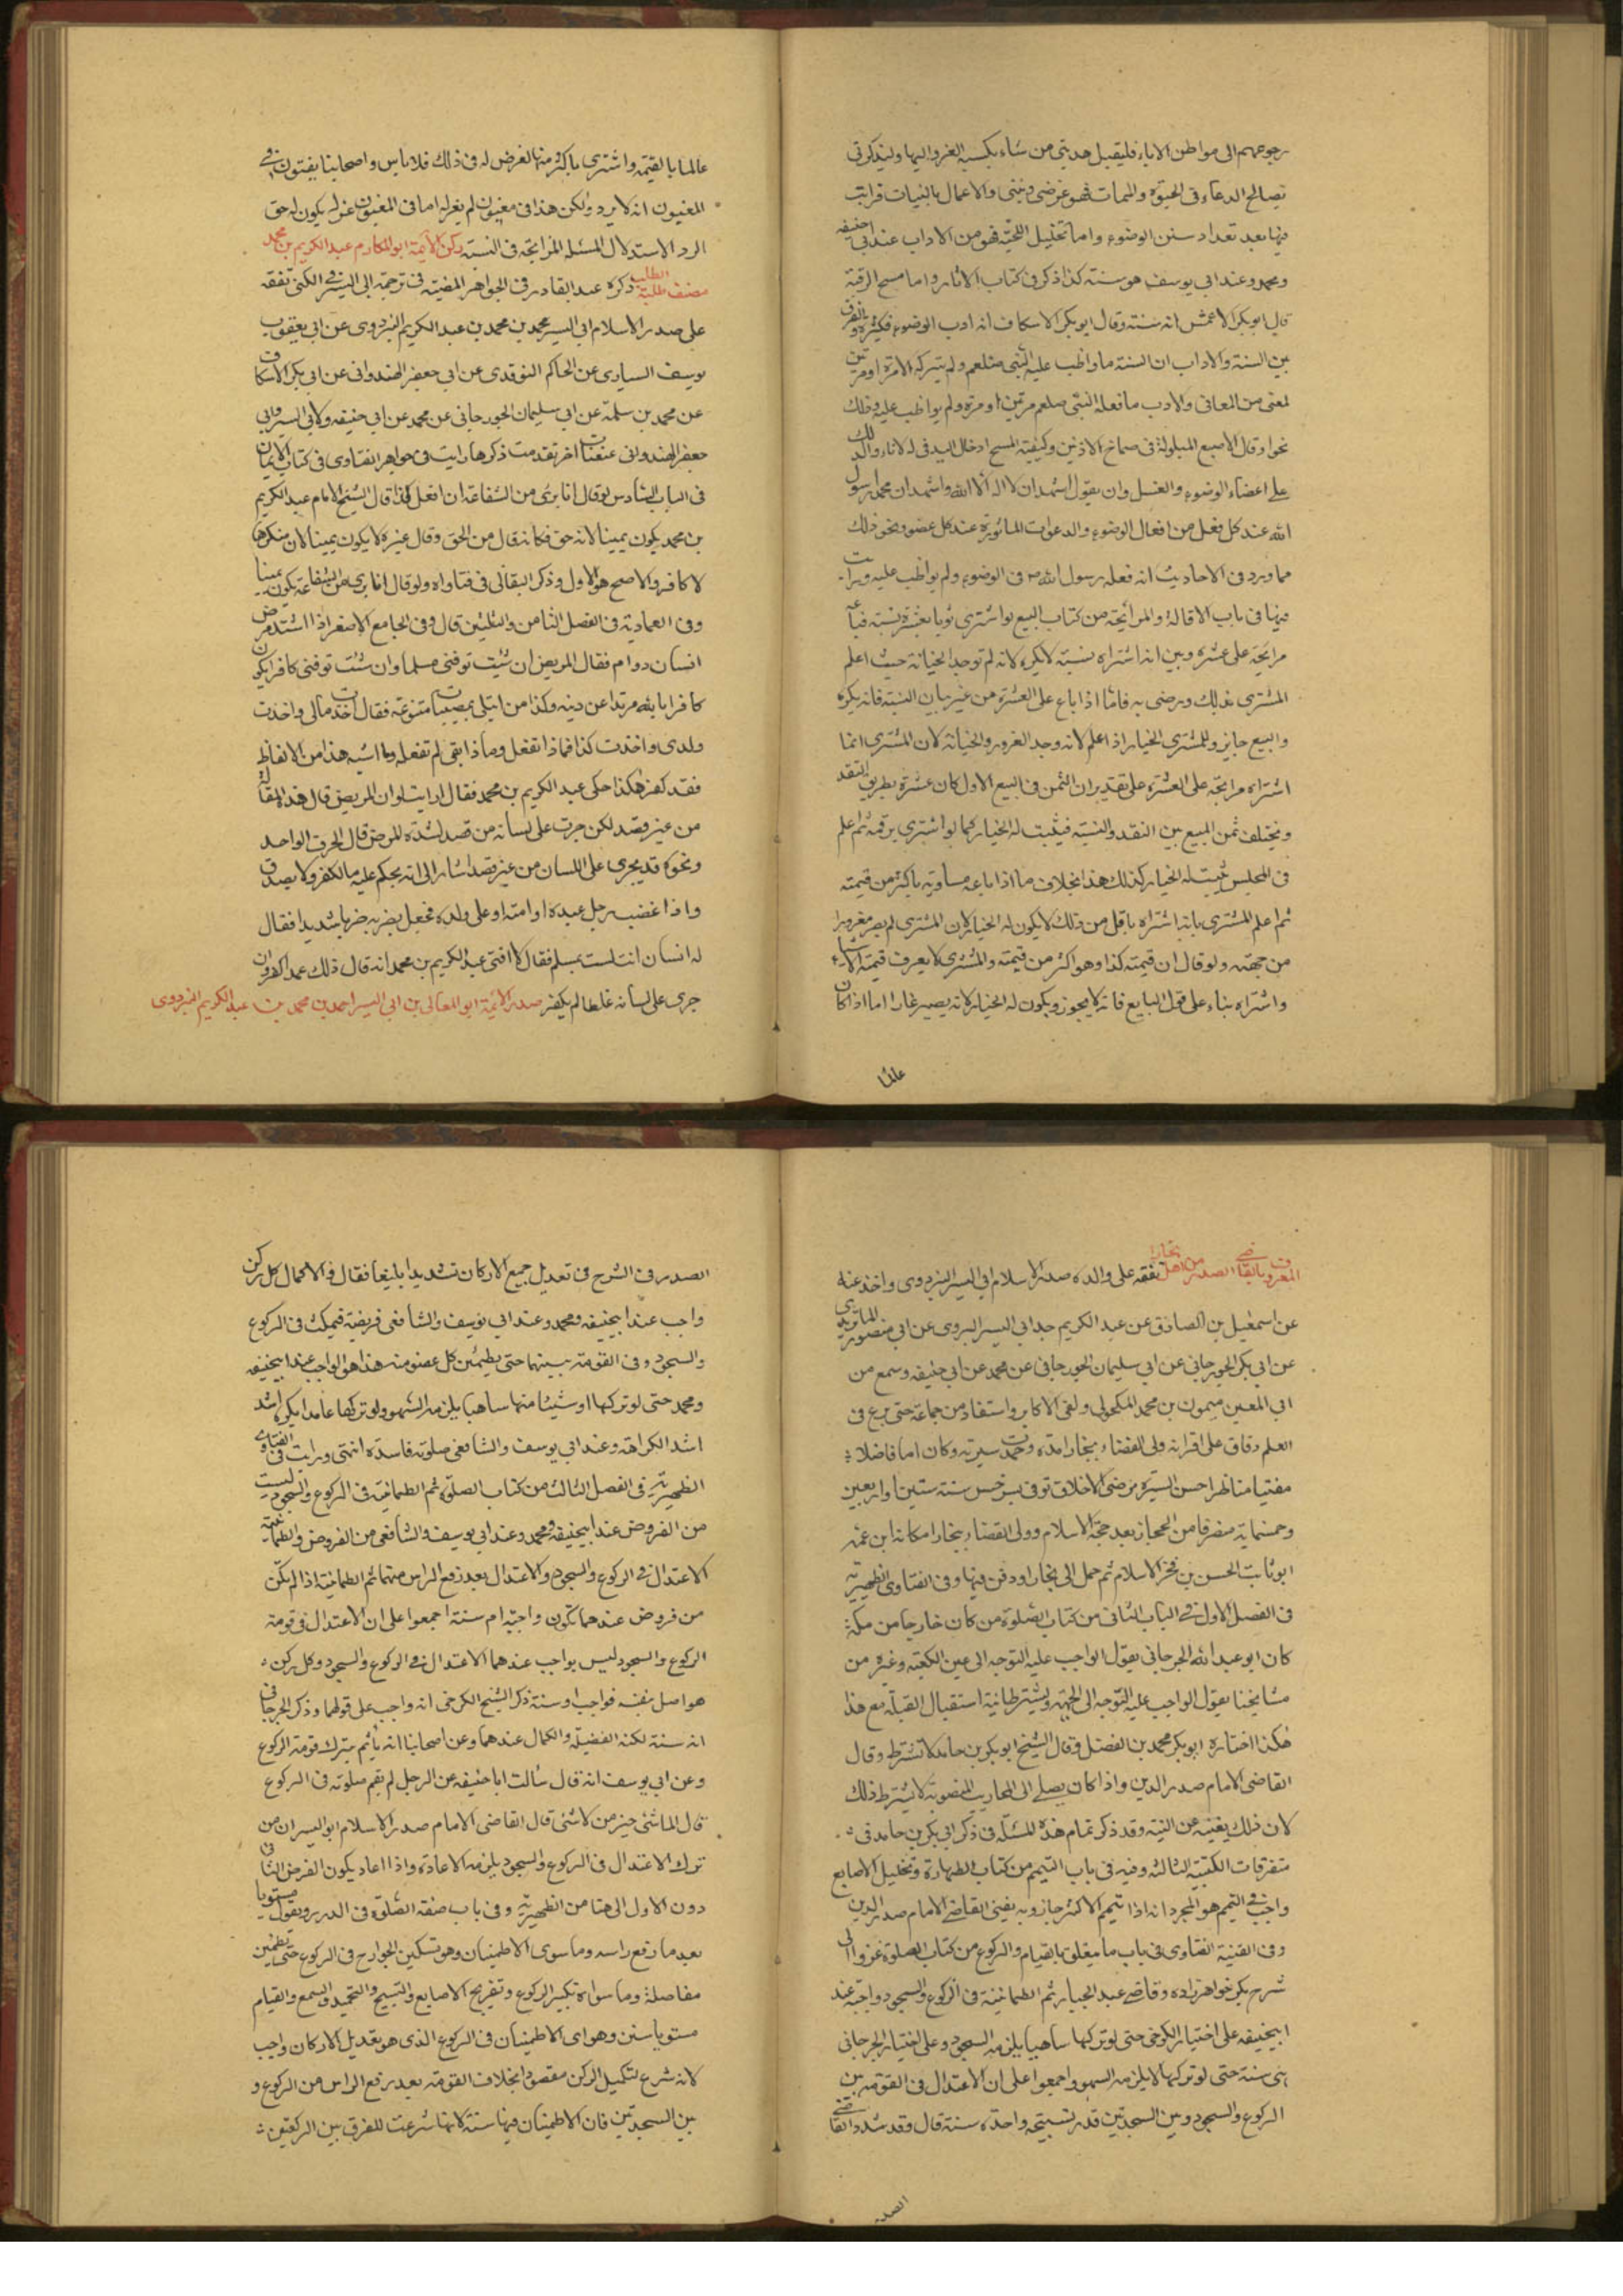 رجوعهم الى مواطن الاباء فليقبل هديتى من شاء يكسبه الغرو اليها وليذكرنى
بصالح الدعاء فى الحيوة والممات فهو غرضى ونيتى والاعمال بالنيات قرايت
فيها بعد تعداد سنن الوضوء واما تخليل اللحية فهو من الاداب عند ابى حنيفة
ومحمد وعند ابى يوسف هو سنة كذا ذكر فى كتاب الاثار واما مسح الرقبة
قال ابو بكر الاعمش انه سنة وقال ابو بكر الاسكاف انه ادب الوضوء فكثرة والفرق
بين السنة والاداب ان السنة ما واظب عليه النبى صلعم ولم يتركه الا مرة او مرتين
لمعنى من المعانى والادب ما فعله النبى صلعم مرتين او مرة ولم يواظب عليه وذلك
نحو ادخال الاصبع المبلولة فى صماخ الاذنين وكيفية المسح ادخال اليد فى الاناء والدلك
على اعضاء الوضوء والغسل وان يقول اشهد ان لا اله الا الله واشهد ان محمدا رسول
الله عند كل فعل من افعال الوضوء والدعوات الماثورة عند كل عضو ونحو ذلك
مما ورد فى الاحاديث انه فعله رسول الله فى الوضوء ولم يواظب عليه ورايت
فيها فى باب الاقالة والمرابحة من كتاب البيع لو اشترى ثوبا بعشرة نسيئة فباعه
مرابحة على عشرة وبين انه اشتراه نسيئة لا يكره لانه لم توجد الخيانة حيث اعلم
المشترى بذلك ورضى به فاما اذا باع على العشرة من غير بيان النسية فانه يكره
والبيع جايز وللمشترى الخيار اذا علم لانه وجد الغرور والخيانة لان المشترى انما
اشتراه مرابحة على العشرة على تقدير ان الثمن فى البيع الاول كان عشرة بطريق النقد
ويختلف ثمن المبيع بين النقد والنسية فيثبت له الخيار كما لو اشترى برقمه ثم علم
فى المجلس يثبت له الخيار كذلك هذا بخلاف ما اذا باعه مساومة باكثر من قيمته
ثم اعلم المشترى بانه اشتراه باقل من ذلك لا يكون له الخيار لان المشترى لم يصر مغرورا
من جهته ولو قال ان قيمته كذا وهو اكثر من قيمته والمشترى لا يعرف قيمة الاشياء
واشتراه بناء على قول البايع فانه لا يجوز ويكون له الخيار لانه يصير غارا اما اذا كان
عالما
عالما بالقيمة واشترى باكثر منها لغرض له فى ذلك فلا باس واصحابنا يفتون فى
المغبون انه لا يرد ولكن هذا فى مغبون لم يغر له اما فى المغبون غر له يكون له حق
الرد الاستدلال المسئلة المرابحة فى النسية ركن الائمة ابو المكارم عبد الكريم بن محمد
مصنف طلبة الطلبة ذكره عبد القادر فى الجواهر المضية فى ترجمة ابى اليسر فى الكنى تفقه
على صدر الاسلام ابى اليسر محمد بن محمد بن عبد الكريم البزدوى عن ابى يعقوب
يوسف السيارى عن الحاكم النوقدى عن ابى جعفر الهندوانى عن ابى بكر الاسكاف
عن محمد بن سلمة عن ابى سليمان الجورجانى عن محمد عن ابى حنيفه ولابى اليسر وابى
جعفر الهندوانى عنعنات اخر تقدمت ذكرها رايت فى جواهر الفتاوى فى كتاب الايمان
فى الباب السادس لو قال انا برئ من الشفاعة ان افعل كذا قال الشيخ الامام عبد الكريم
بن محمد يكون يمينا لانه حق فكانه قال من الحق وقال غيره لا يكون يمينا لان منكرها
لا كافر والاصح هو الاول وذكر البقالى فى فتاواه ولو قال انا برى من الشفاعة يكون يمينا
وفى العمادية فى الفصل الثامن والثلثين قال وفى الجامع الاصغر اذا اشتد مرض
انسان دوام فقال المريض ان شئت توفنى مسلما وان شئت توفنى كافرا يكون
كافرا بالله مرتدا عن دينه وكذا من ابتلى بمصيبات متنوعة فقال اخذت مالى واخذت
ولدى واخذت كذا فماذا تفعل وماذا بقى لم تفعله وما اشبه هذا من الالفاظ
فقد كفر هكذا حكى عبد الكريم بن محمد فقال ارايت لو ان المريض قال هذه المقالة
من غير قصد لكن جرت على لسانه من قصد لشدة المرض قال الحرف الواحد
ونحوه قد يجرى على اللسان من غير قصد اشار الى انه يحكم عليه بالكفر ولا يصدق
واذا غضب رجل عبده او امته او على ولده فجعل يضربه ضربا شديدا فقال
له انسان انت لست بمسلم فقال لا افتى عبد الكريم بن محمد انه قال ذلك عمدا كفر وان
جرى على لسانه غلطا لم يكفر صدر الائمة ابو المعالى بن ابى اليسر احمد بن محمد بن عبد الكريم البزدوى
المعروف بالقاضى الصدر من اهل بخارا تفقه على والده صدر الاسلام ابى اليسر البزدوى واخذ عنه
عن اسمعيل بن الصادق عن عبد الكريم جد ابى اليسر البزدوى عن ابى منصور الماتريدى
عن ابى بكر الجورجانى عن ابى سليمان الجورجانى عن محمد عن ابى حنيفه وسمع من
ابى المعين ميمون بن محمد المكحولى ولقى الاكابر واستفاد من جماعة حتى برع فى
العلم وفاق على اقرانه ولى القضاء ببخارا مدة وحمدت سيرته وكان اماما فاضلا
مفتيا مناظرا حسن السيرة مرضى الاخلاق توفى بسرخس سنة ستين او اربعين
وخمسماية منصرفا من الحجاز بعد حجة الاسلام وولى القضاء ببخارا مكانه ابن عمه
ابو ثابت الحسن بن فخر الاسلام ثم حمل الى بخارا ودفن فيها وفى الفتاوى الظهيرية
فى الفصل الاول فى الباب الثانى من كتاب الصلوة من كان خارجا من مكة
كان ابو عبد الله الجرجانى يقول الواجب عليه التوجه الى عين الكعبة وغيره من
مشايخنا يقول الواجب عليه التوجه الى الجهة ويشترط نية استقبال القبلة مع هذا
هكذا اختاره ابو بكر محمد بن الفضل وقال الشيخ ابو بكر بن حامد لا تشترط وقال
القاضى الامام صدر الدين واذا كان يصلى الى المحاريب المنصوبة لا يشترط ذلك
لان ذلك يغنيه عن النية وقد ذكر تمام هذه المسئلة فى ذكر ابى بكر بن حامد فى
متفرقات الكتيبة الثالثة وفيه فى باب التيمم من كتاب الطهارة وتخليل الاصابع
واجب فى التيمم هو المجرد انه اذا تيمم الاكثر جاز وبه يفتى القاضى الامام صدر الدين
وفى القنية الفتاوى فى باب ما يتعلق بالقيام والركوع من كتاب الصلوة غزوا الى
شرح بكر خواهر زاده وقاضى عبد الجبار ثم الطمانينة فى الركوع والسجود واجبة عند
ابيحنيفه على اختيار الكرخى حتى لو تركها ساهيا يلزمه السجود وعلى اختيار الجرجانى
هى سنة حتى لو تركها لا يلزمه السهو واجمعوا على ان الاعتدال فى القومة بين
الركوع والسجود وبين السجدتين قدر تسبيحة واحدة سنة قال وقد شدد القاضى
الصدر
الصدر فى الشرح فى تعديل جميع الاركان تشديدا بليغا فقال والاكمال كل ركن
واجب عند ابيحنيفه ومحمد وعند ابى يوسف والشافعى فريضة فيمكث فى الركوع
والسجود وفى القومة بينهما حتى يطمئن كل عضو منه هذا هو الواجب عند ابيحنيفه
ومحمد حتى لو تركها او شيئا منها ساهيا يلزمه السهو ولو تركها عامدا يكره اشد
اشد الكراهة وعند ابى يوسف والشافعى صلوته فاسدة انتهى ورايت فى الفتاوى
الظهيرية فى الفصل الثالث من كتاب الصلوة ثم الطمانينة فى الركوع والسجود ليست
من الفروض عند ابيحنيفة ومحمد وعند ابى يوسف والشافعى من الفروض والطمانينة
الاعتدال فى الركوع والسجود والاعتدال بعد رفع الراس منهما ثم الطمانينة اذا لم يكن
من فروض عندهما تكون واجبة ام سنة اجمعوا على ان الاعتدال فى قومة
الركوع والسجود ليس بواجب عندهما الاعتدال فى الركوع والسجود وكل ركن
هو اصل بنفسه فواجب او سنة ذكر الشيخ الكرخى انه واجب على قولهما وذكر الجرجانى
انه سنة لكنه الفضيلة والكمال عندهما وعن اصحابنا انه ياثم بترك قومة الركوع
وعن ابى يوسف انه قال سالت ابا حنيفه عن الرجل لم يقم صلوته فى الركوع
قال الماشئ خير من لا شئ قال القاضى الامام صدر الاسلام ابو اليسر ان من
ترك الاعتدال فى الركوع والسجود يلزمه الاعادة واذا اعاد يكون الفرض الثانى
دون الاول الى هنا من الظهيرية وفى باب صفة الصلوة فى الدرر ويقول مستويا
بعد ما رفع راسه وما سوى الاطمينان وهو تسكين الجوارح فى الركوع حتى يطمئن
مفاصله وما سواه تكبير الركوع وتفريج الاصابع والتسبيح والتحميد والسمع والقيام
مستويا سنن وهو اى الاطمينان فى الركوع الذى هو تعديل الاركان واجب
لانه شرع لتكميل الركن مقصود بخلاف القومة بعد رفع الراس من الركوع و
بين السجدتين فان الاطمينان فيها سنة لانها شرعت للفرق بين الركعتين